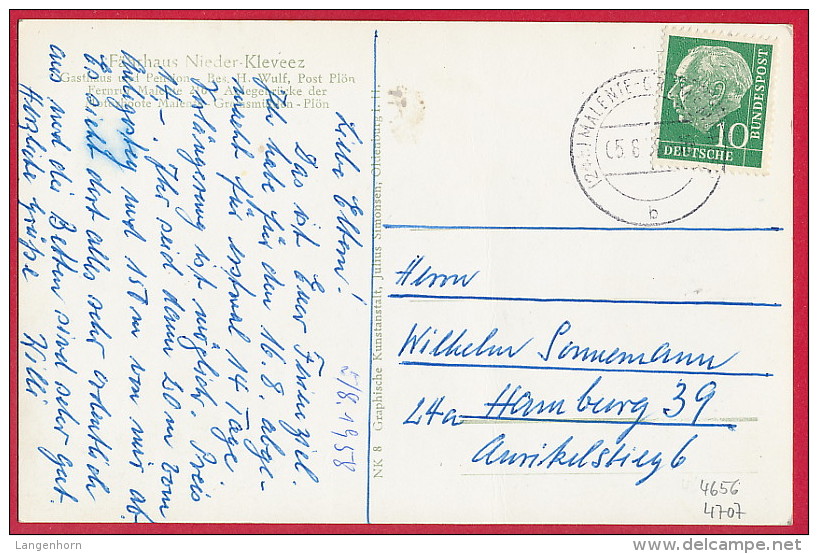 Fährhaus Nieder-Kleveez
Gasthaus und Pension · Bes. H. Wulf, Post Plön
Fernruf Malente 276 · Anlegebrücke der
Motorboote Malente - Gremsmühlen - Plön
Liebe Eltern!
Das ist Euer Ferienziel.
Ich habe für den 16.8. abge-
macht für erstmal 14 Tage.
Verlängerung ist möglich. Preis
Ihr seid dann 20 m vom
und 150 m von mir ab
Es sieht dort alles sehr ordentlich
aus und die Betten sind sehr gut.
Herzliche Grüße Willi
5/8.1958
NK 8 Graphische Kunstanstalt, Julius Simonsen, Oldenburg i. H.
MALENTE-G
b
10
DEUTSCHE
BUNDESPOST
Herrn
Wilhelm Sonnemann
24a Hamburg 39
Aurikelstieg 6
4656
4707
Langenhorn
delcampe.net